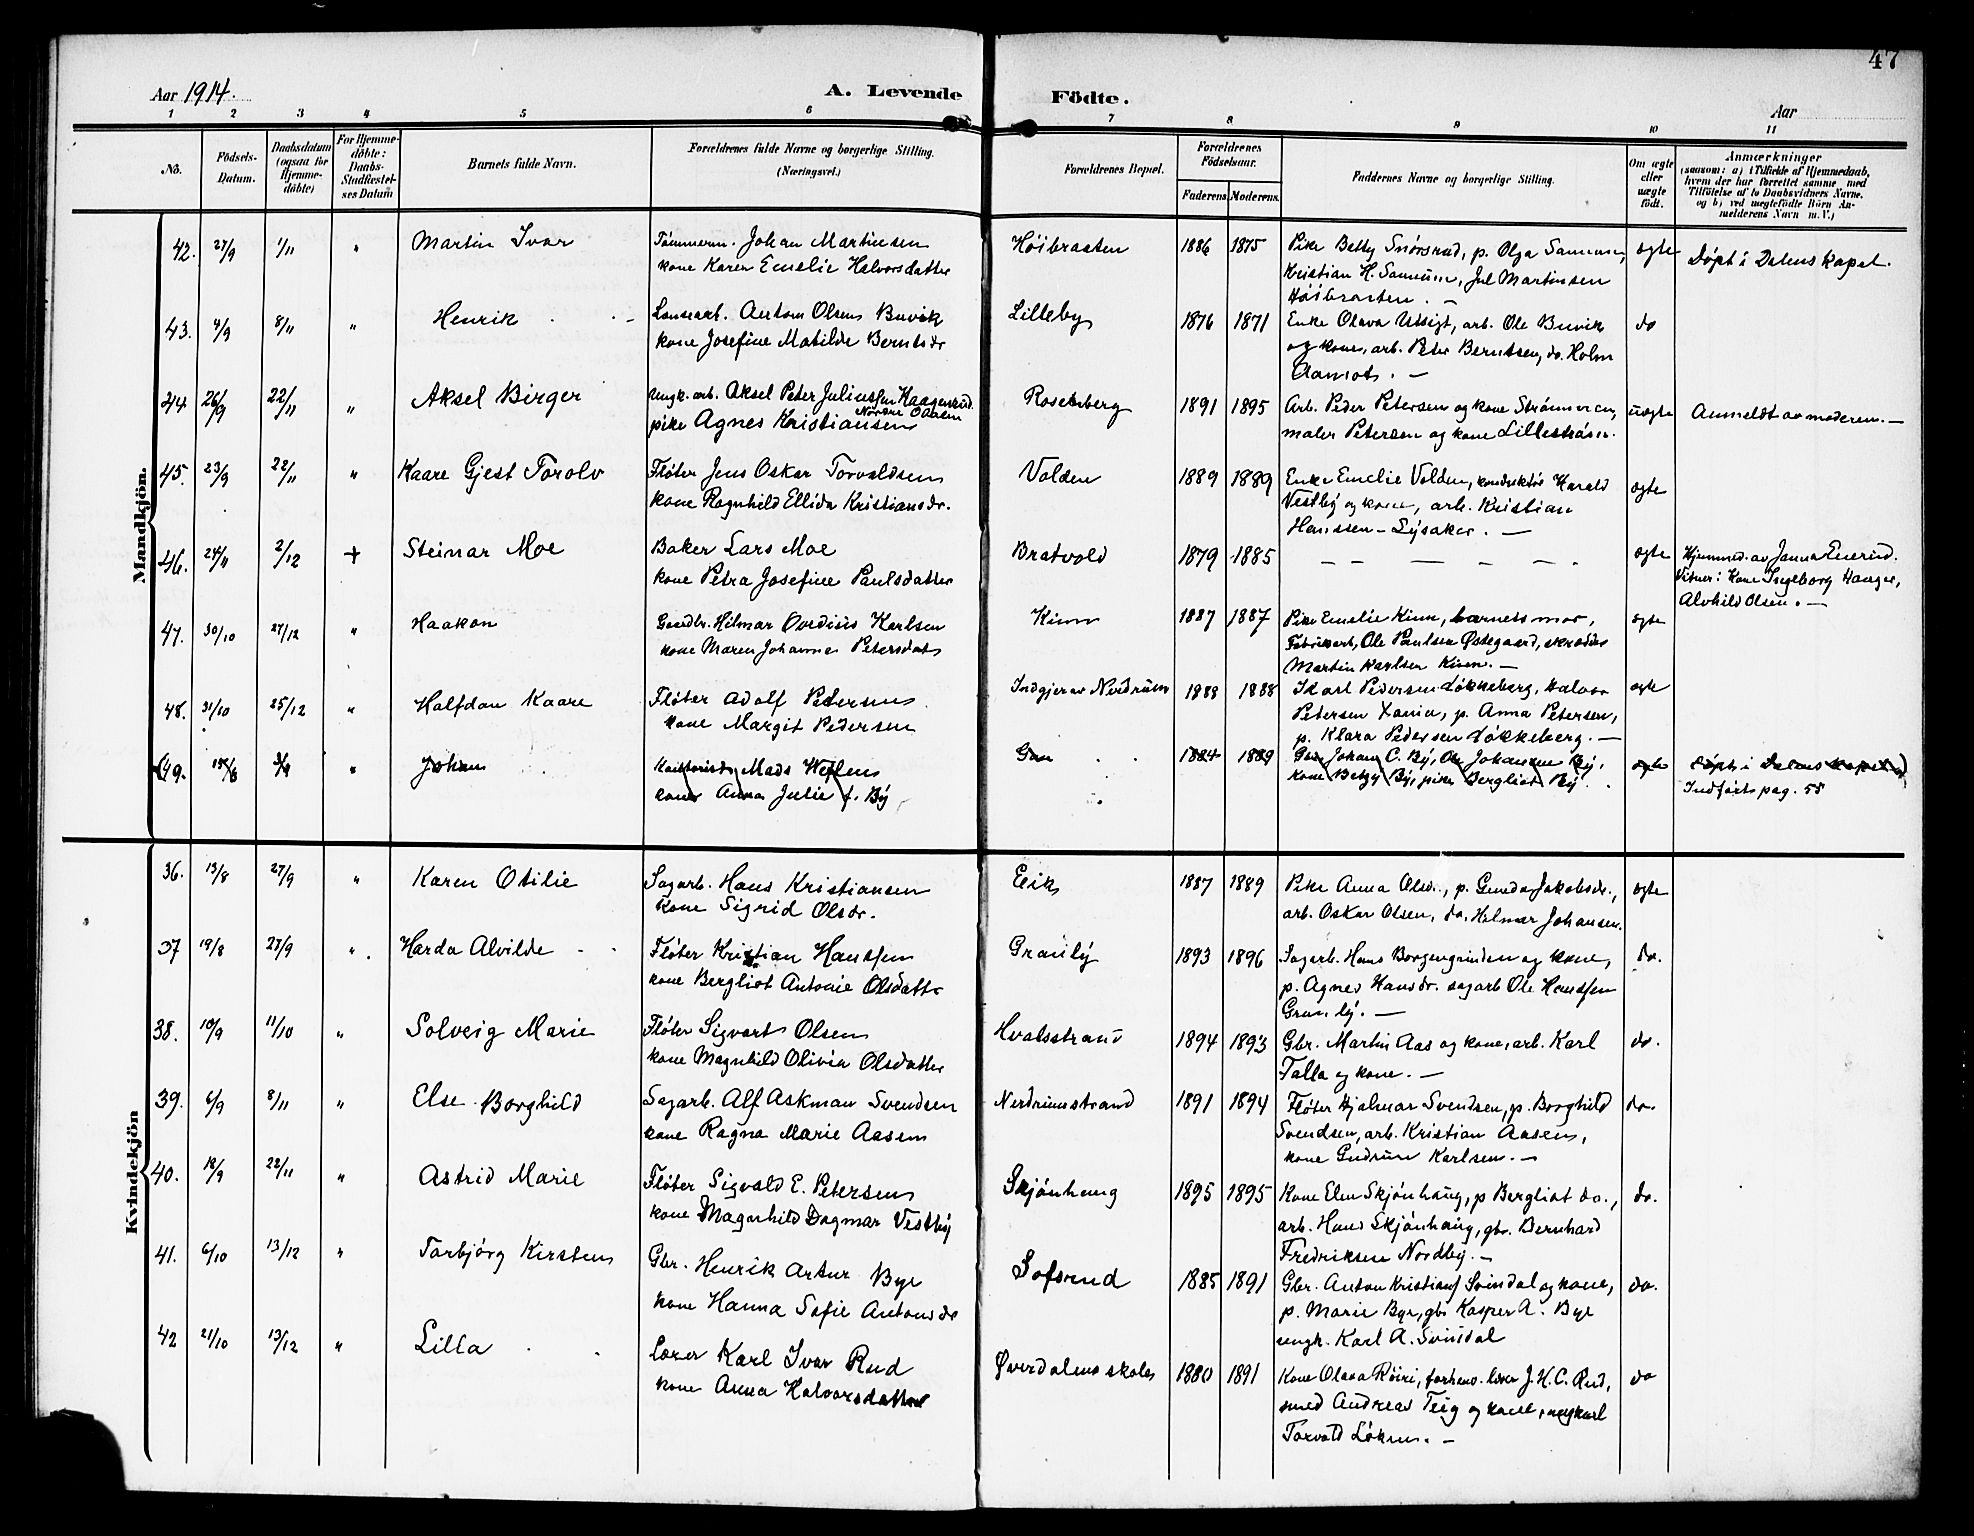 47
Aar 1914.
A. Levende Födte.
Aar
1 2 3 4 5 6 7 8 9 10 11
No.
Födsels-Datum.
Daabsdatum (ogsaa for Hjemmedöbte)
For Hjemmedöbte: Daabs-Stadfæstelses Datum
Barnets fulde Navn.
Forældrenes fulde Navne og borgerlige Stilling. (Næringsvei.)
Forældrenes Bopæl.
Forældrenes Födselsaar.
Faderens. Moderens.
Faddernes Navne og borgerlige Stilling.
Om ægte eller uægte födt.
Anmærkninger
(saasom: a) i Tilfælde af Hjemmedaab, hvem der har forrettet samme med Tilföielse af to Daabsvidners Navne, og b) ved uægtefödte Börn Anmelderens Navn m. V.)
Mandkjön.
42. 27/9 1/11 " Martin Ivar Tömmerm. Johan Martinsen Höibraaten 1886 1875 Pike Betty Snörsrud, p. Olga Sannum, ægte Döpt i Dalens kapel.
kone Karen Emelie Halvorsdatter Kristian H. Sannum, Jul Martinsen
Höibraaten. —
43. 4/9 8/11 " Henrik Lensearb. Anton Olsen Buvik Lilleby 1876 1871 Enke Olava Utsigt, arb. Ole Buvik do
kone Josefine Matilde Berntsdr og kone, arb. Peter Berntsen, do. Holm
Aamot. —
44 26/9 22/11 " Aksel Birger Ungk. arb. Aksel Peter Juliussen Haagenrud. Rosenberg 1891 1895 Arb. Peder Petersen og kone Strömmen, uægte Anmeldt av moderen. —
pike Agnes Kristiansen Nordre Aasen maler Petersen og kone Lilleström.
45. 23/9 22/11 " Kaare Gjest Torolv Flöter Jens Oskar Torvaldsen Volden 1889 1889 Enke Emelie Volden, konduktör Harald ægte
kone Ragnhild Ellida Kristiansdr. Vestby og kone, arb. Kristian
Hanssen - Lysaker. —
46. 24/11 2/12 + Steinar Moe Baker Lars Moe Bratvold 1879 1885 — — — — — ægte Hjemmed. av Janna Enerud.
kone Petra Josefine Paulsdatter Vitner: Kone Ingeborg Haagær,
Alvhild Olsen. —
47. 30/10 27/12 " Haakon Gaardbr. Hilmar Ovedius Karlsen Kinn 1887 1887 Pike Emelie Kinn, barnets mor, ægte
kone Maren Johanne Petersdat Fabrikarb. Ole Paulsen Östegaard, skrædder
Martin Karlsen Kinn. —
48. 31/10 25/12 " Halfdan Kaare Flöter Adolf Petersen Indgjer av Nerdrum 1888 1888 Karl Pedersen Lökkeberg, Halvor ægte
kone Margit Pedersen Petersen Xania, p. Anna Petersen,
p. Klara Pedersen Lökkeberg. —
49. 15/6 3/9 " Johan Mads Wessen Gan 1884 1889 Gbr. Johan C. By, Ole Johansen By, ægte döpt i Dalens kapel
kone Anna Julie f. By kone Betzy By, pike Bergliot By. Indfört pag. 55
Kvindekjön
36. 13/8 27/9 " Karen Otilie Sagarb. Hans Kristiansen Eik 1887 1889 Pike Anna Olsdr., p. Gunda Jakobsdr., ægte
kone Sigrid Olsdr. arb. Oskar Olsen, do. Helmer Johansen.
37 19/8 27/9 " Harda Alvilde Flöter Kristian Hanssen Granly 1893 1896 Sagarb. Hans Borgengrinden og kone, do.
kone Bergliot Antonie Olsdatte p. Agnes Hansdr. sagarb Ole Hanssen
Granly. —
38. 10/9 11/10 " Solveig Marie Flöter Sigvart Olsen Hvalsstrand 1894 1893 Gbr. Martin Aas og kone, arb. Karl do.
kone Magnhild Olivia Olsdatter Falla og kone. —
39. 6/9 8/11 " Else Borghild Sagarb. Alf Askman Svendsen Nerdrumstrand 1891 1894 Flöter Hjalmar Svendsen, p. Borghild do.
kone Ragna Marie Aasen Svendsen, arb. Kristian Aasen,
kone Gudrun Karlsen. —
40. 18/9 22/11 " Astrid Marie Flöter Sigvald E. Petersen Skjönhaug 1895 1895 Kone Elen Skjönhaug, p Bergliot do., do.
kone Magnhild Dagmar Vestby arb. Hans Skjönhaug, gbr. Bernhard
Fredriksen Nordby. —
41. 6/10 13/12 " Torbjörg Kirsten Gbr. Henrik Artur Bye Sofsrud 1885 1891 Gbr. Anton Kristians Svindal og kone, do.
kone Hanna Sofie Antonsdr p. Marie Bye, gbr Kasper A. Bye
ungk. Karl A. Svindal
42 21/10 13/12 " Lilla Lærer Karl Ivar Rud Överdalens skole 1880 1891 Kone Olava Röiri, forhenv. lærer J. H. C. Rud, do
kone Anna Halvorsdatter smed Andreas Teig og kone, ungkarl
Torvald Löken. —